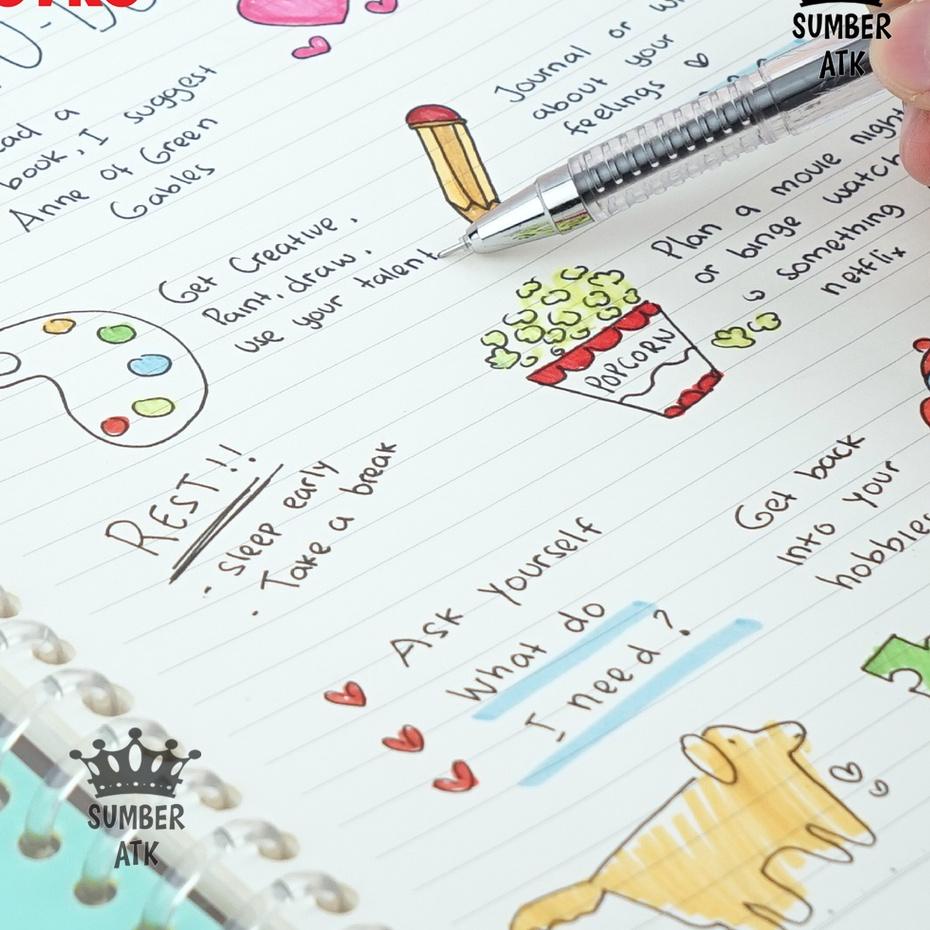 Read a
book, I suggest
Anne of Green
Gables
Journal or
about your
feelings
Get Creative,
Paint, draw,
use your talent
Plan a movie night
or binge watch
something
netflix
POPCORN
REST!!
· Sleep early
· Take a break
Ask Yourself
What do
I need?
Get back
Into Your
hobbies
SUMBER
ATK
SUMBER
ATK